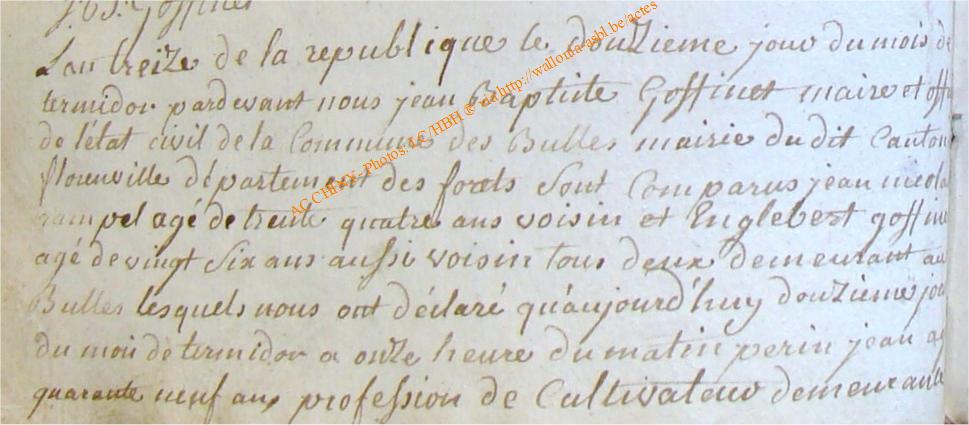 J. B. J. Goffinet
L'an treize de la republique le douzieme jour du mois de
termidor pardevant nous jean Baptiste Goffinet maire et offi
de l'état civil de la Commune des Bulles mairie du dit Canton
florenville département des forets Sont Comparus jean nicola
gampel agé de trente quatre ans voisin et Englebert goffine
agé de vingt Six ans aussi voisin tous deux demeurant au
Bulles lesquels nous ont déclaré qu'aujourd'huy douzieme jou
du moi de termidor a onze heure du matin perin jean ag
quarante neuf ans profession de Cultivateur demeurant
ACCHIXX-Photos: LC/HBH ® - http://wallonia-asbl.be/actes